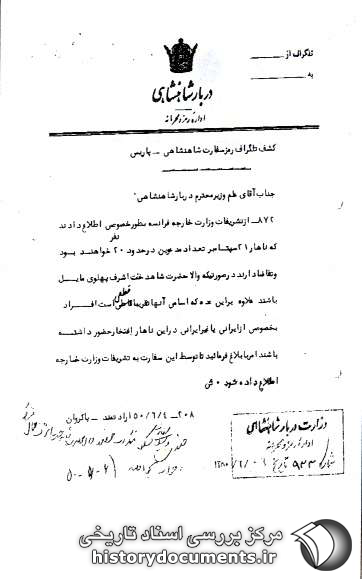 تلگراف از
به
دربار شاهنشاهی
اداره رمز و محرمانه
کشف تلگراف رمز سفارت شاهنشاهی – پاریس
جناب آقای علم وزیر محترم دربار شاهنشاهی
۸۷۲- از تشریفات وزارت خارجه فرانسه بطور خصوصی اطلاع دادند
نفر
که ناهار ۲۱ سپتامبر تعداد مدعوین در حدود ۲۰ خواهند بود
و تقاضا دارند در صورتیکه والا حضرت شاهدخت اشرف پهلوی مایل
باشند علاوه بر این عده که اسامی آنها تقریبا قطعی است افراد
بخصوصی از ایرانی یا غیر ایرانی در این ناهار افتخار حضور داشته
باشند امر بابلاغ فرمائید تا توسط این سفارت به تشریفات وزارت خارجه
اطلاع داده شود
۲۰۸- ۵۰/۶/۴ ارادتمند – پاکروان
وزارت دربار شاهنشاهی
اداره رمز و محرمانه
شماره ۹۳۳ تاریخ
مرکز بررسی اسناد تاریخی
historydocuments.ir